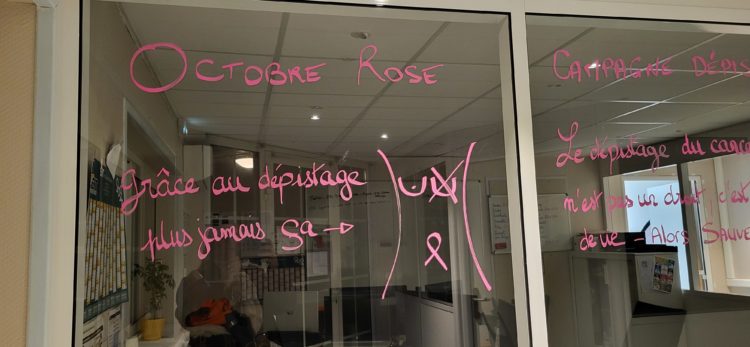 OCTOBRE ROSE
Grâce au dépistage
plus jamais ça →
CAMPAGNE DÉPIS
Le dépistage du canc
n'est pas un droit, c'est
de vie - ALORS SAUVE